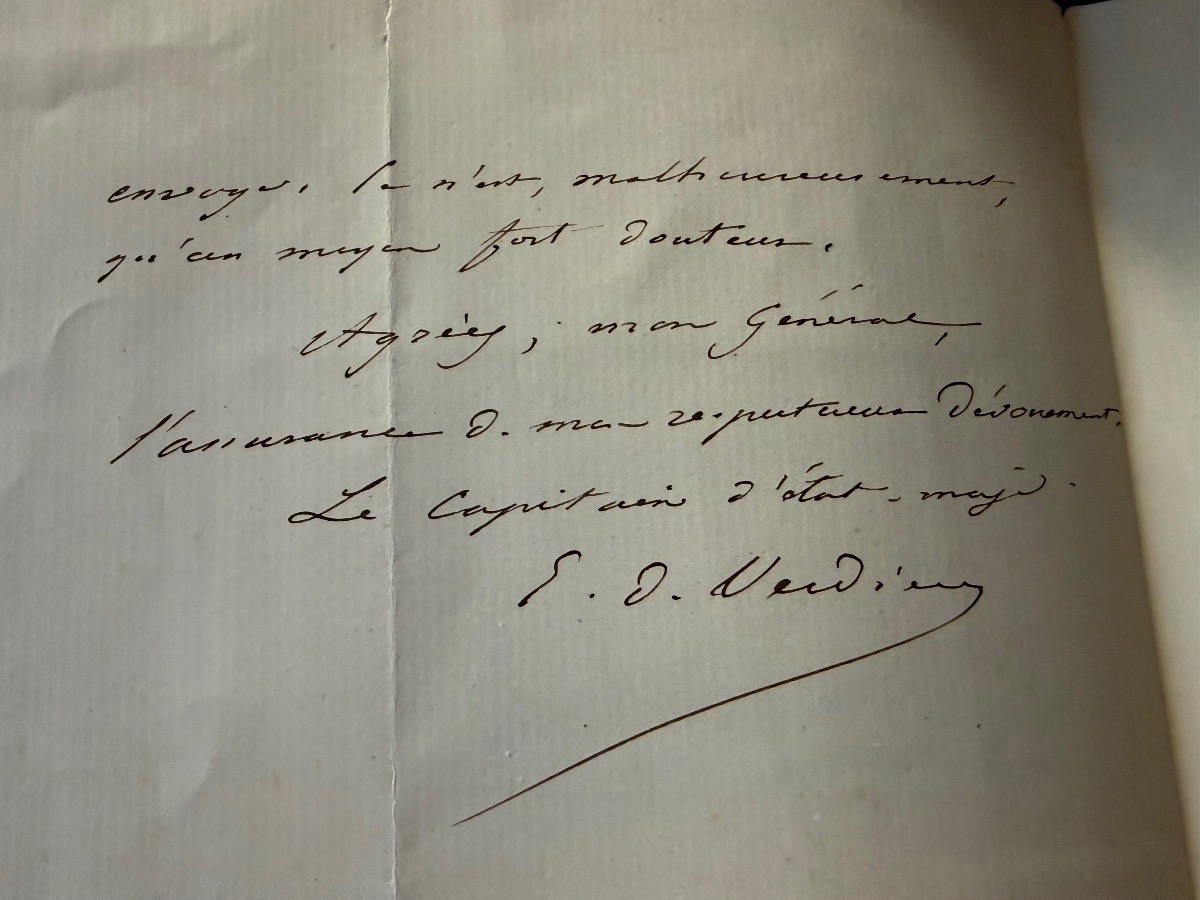 envoyer. Ce n'est, malheureusement,
qu'un moyen fort douteux.
Agréez, mon Général,
l'assurance de mon respectueux dévouement.
Le Capitaine d'état-major
E. de Verdière